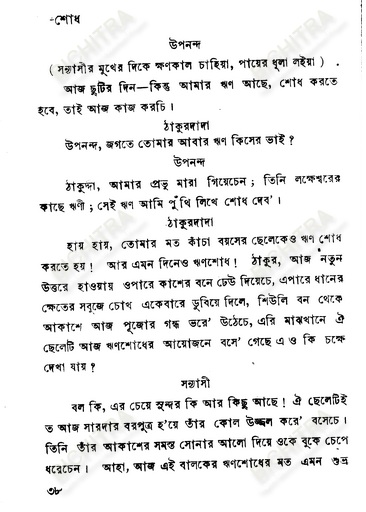 -শোধ
উপনন্দ
( সন্ন্যাসীর মুখের দিকে ক্ষণকাল চাহিয়া, পায়ের ধূলা লইয়া ) .
আজ ছুটির দিন—কিন্তু আমার ঋণ আছে, শোধ করতে
হবে, তাই আজ কাজ করচি ।
ঠাকুরদাদা
উপনন্দ, জগতে তোমার আবার ঋণ কিসের ভাই ?
উপনন্দ
ঠাকুদ্দা, আমার প্রভু মারা গিয়েচেন ; তিনি লক্ষেশ্বরের
কাছে ঋণী ; সেই ঋণ আমি পুঁথি লিখে শোধ দেব’ ।
ঠাকুরদাদা
হায় হায়, তোমার মত কাঁচা বয়সের ছেলেকেও ঋণ শোধ
করতে হয় ! আর এমন দিনেও ঋণশোধ ! ঠাকুর, আজ নতুন
উত্তরে হাওয়ায় ওপারে কাশের বনে ঢেউ দিয়েচে, এপারে ধানের
ক্ষেতের সবুজে চোখ একেবারে ডুবিয়ে দিলে, শিউলি বন থেকে
আকাশে আজ পূজোর গন্ধ ভরে’ উঠেচে, এরি মাঝখানে ঐ
ছেলেটি আজ ঋণশোধের আয়োজনে বসে’ গেছে এ ও কি চক্ষে
দেখা যায় ?
সন্ন্যাসী
বল কি, এর চেয়ে সুন্দর কি আর কিছু আছে ! ঐ ছেলেটিই
ত আজ সারদার বরপুত্র হ’য়ে তাঁর কোল উজ্জল করে’ বসেচে ।
তিনি তাঁর আকাশের সমস্ত সোনার আলো দিয়ে ওকে বুকে চেপে
ধরেচেন । আহা, আজ এই বালকের ঋণশোধের মত এমন শুভ্র
৩৮